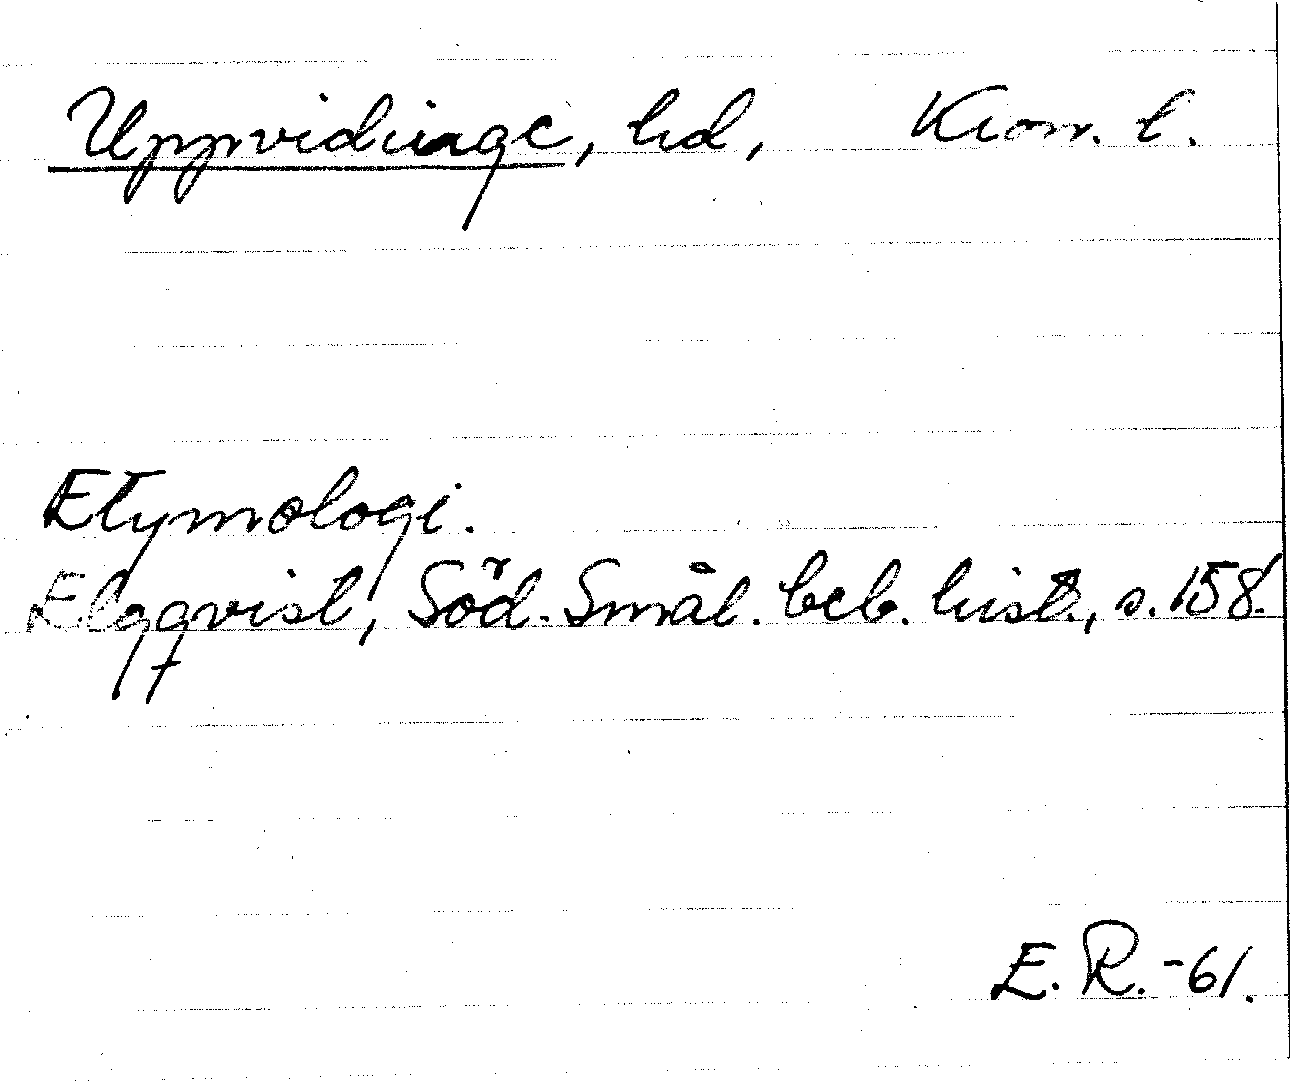 Uppvidinge, hd, Kron. l.
Etymologi.
Elgqvist, Söd. Smål. beb. hist., s. 158.
E. R. -61.